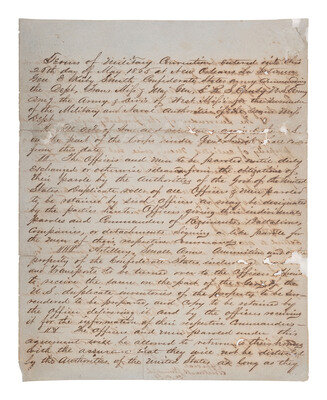 Terms of Military Convention entered into this
26th day of May 1865 at New Orleans La between
Gen E Kirby Smith Confederate States Army Commanding
the Dept. Trans Miss & Maj Gen E R S Canby U S Army
Com'g the Army & Div of West Miss for the surrender
of the Military and Naval
Dept.
of the
given this date
II. The Officers and men to be paroled until duly
exchanged or otherwise released from the obligation of
their parole by the authorities of the Gov of the United
States Duplicate rolls of all Officers & men paroled
to be retained by such Officers as may be designated
by the parties hereto Officers giving their individual
paroles and Commanders of Regiments, Battalions
Companies, or detachments signing a like parole for
the men of their respective Commands
III. Artillery Small Arms Ammunition and other
property of the Confederate States including
and Transports to be turned over to the Officers appointed
to receive the same on the part of the Gov of the
U.S. duplicate inventories of the property to be surrendered
to be prepared, one copy to be retained by
the officer delivering it and by the officer receiving
it for the information of their respective Commanders
IV. The Officers and men paroled under this
agreement will be allowed to return to their homes
with the assurance that they will not be disturbed
by the Authorities of the United States as long as they